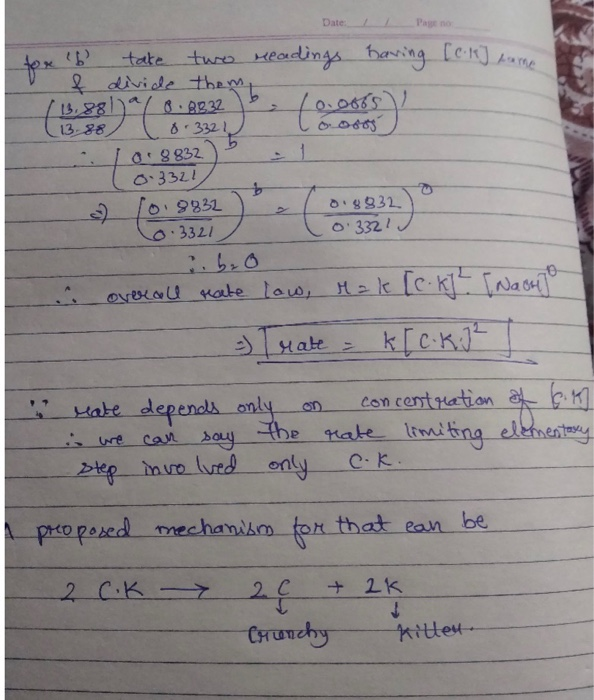 Date: / / Page no:
for 'b' take two readings having [C.K] same
& divide them,
(13.881/13.88)^a (0.8832/0.3321)^b = (0.0665/0.0665)^1
∴ (0.8832/0.3321)^b = 1
⇒ (0.8832/0.3321)^b = (0.8832/0.3321)^0
∴ b=0
∴ overall rate law, r = k [C.K]^2. [NaOH]^0
⇒ rate = k[C.K.]^2
∵ rate depends only on concentration of [C.K]
∴ we can say the rate limiting elementary
step involved only C.K.
A proposed mechanism for that can be
2 C.K → 2C + 2K
↓ ↓
Crunchy Kitten.